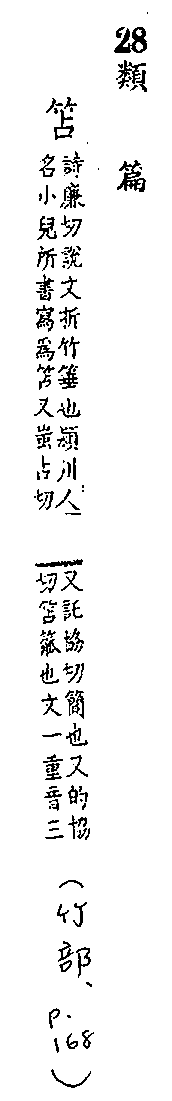 28 類篇
笘
詩廉切說文折竹箠也潁川人
名小兒所書寫爲笘又蚩占切
又託協切簡也又的協
切笘箛也文一重音三
（竹部、p.168）